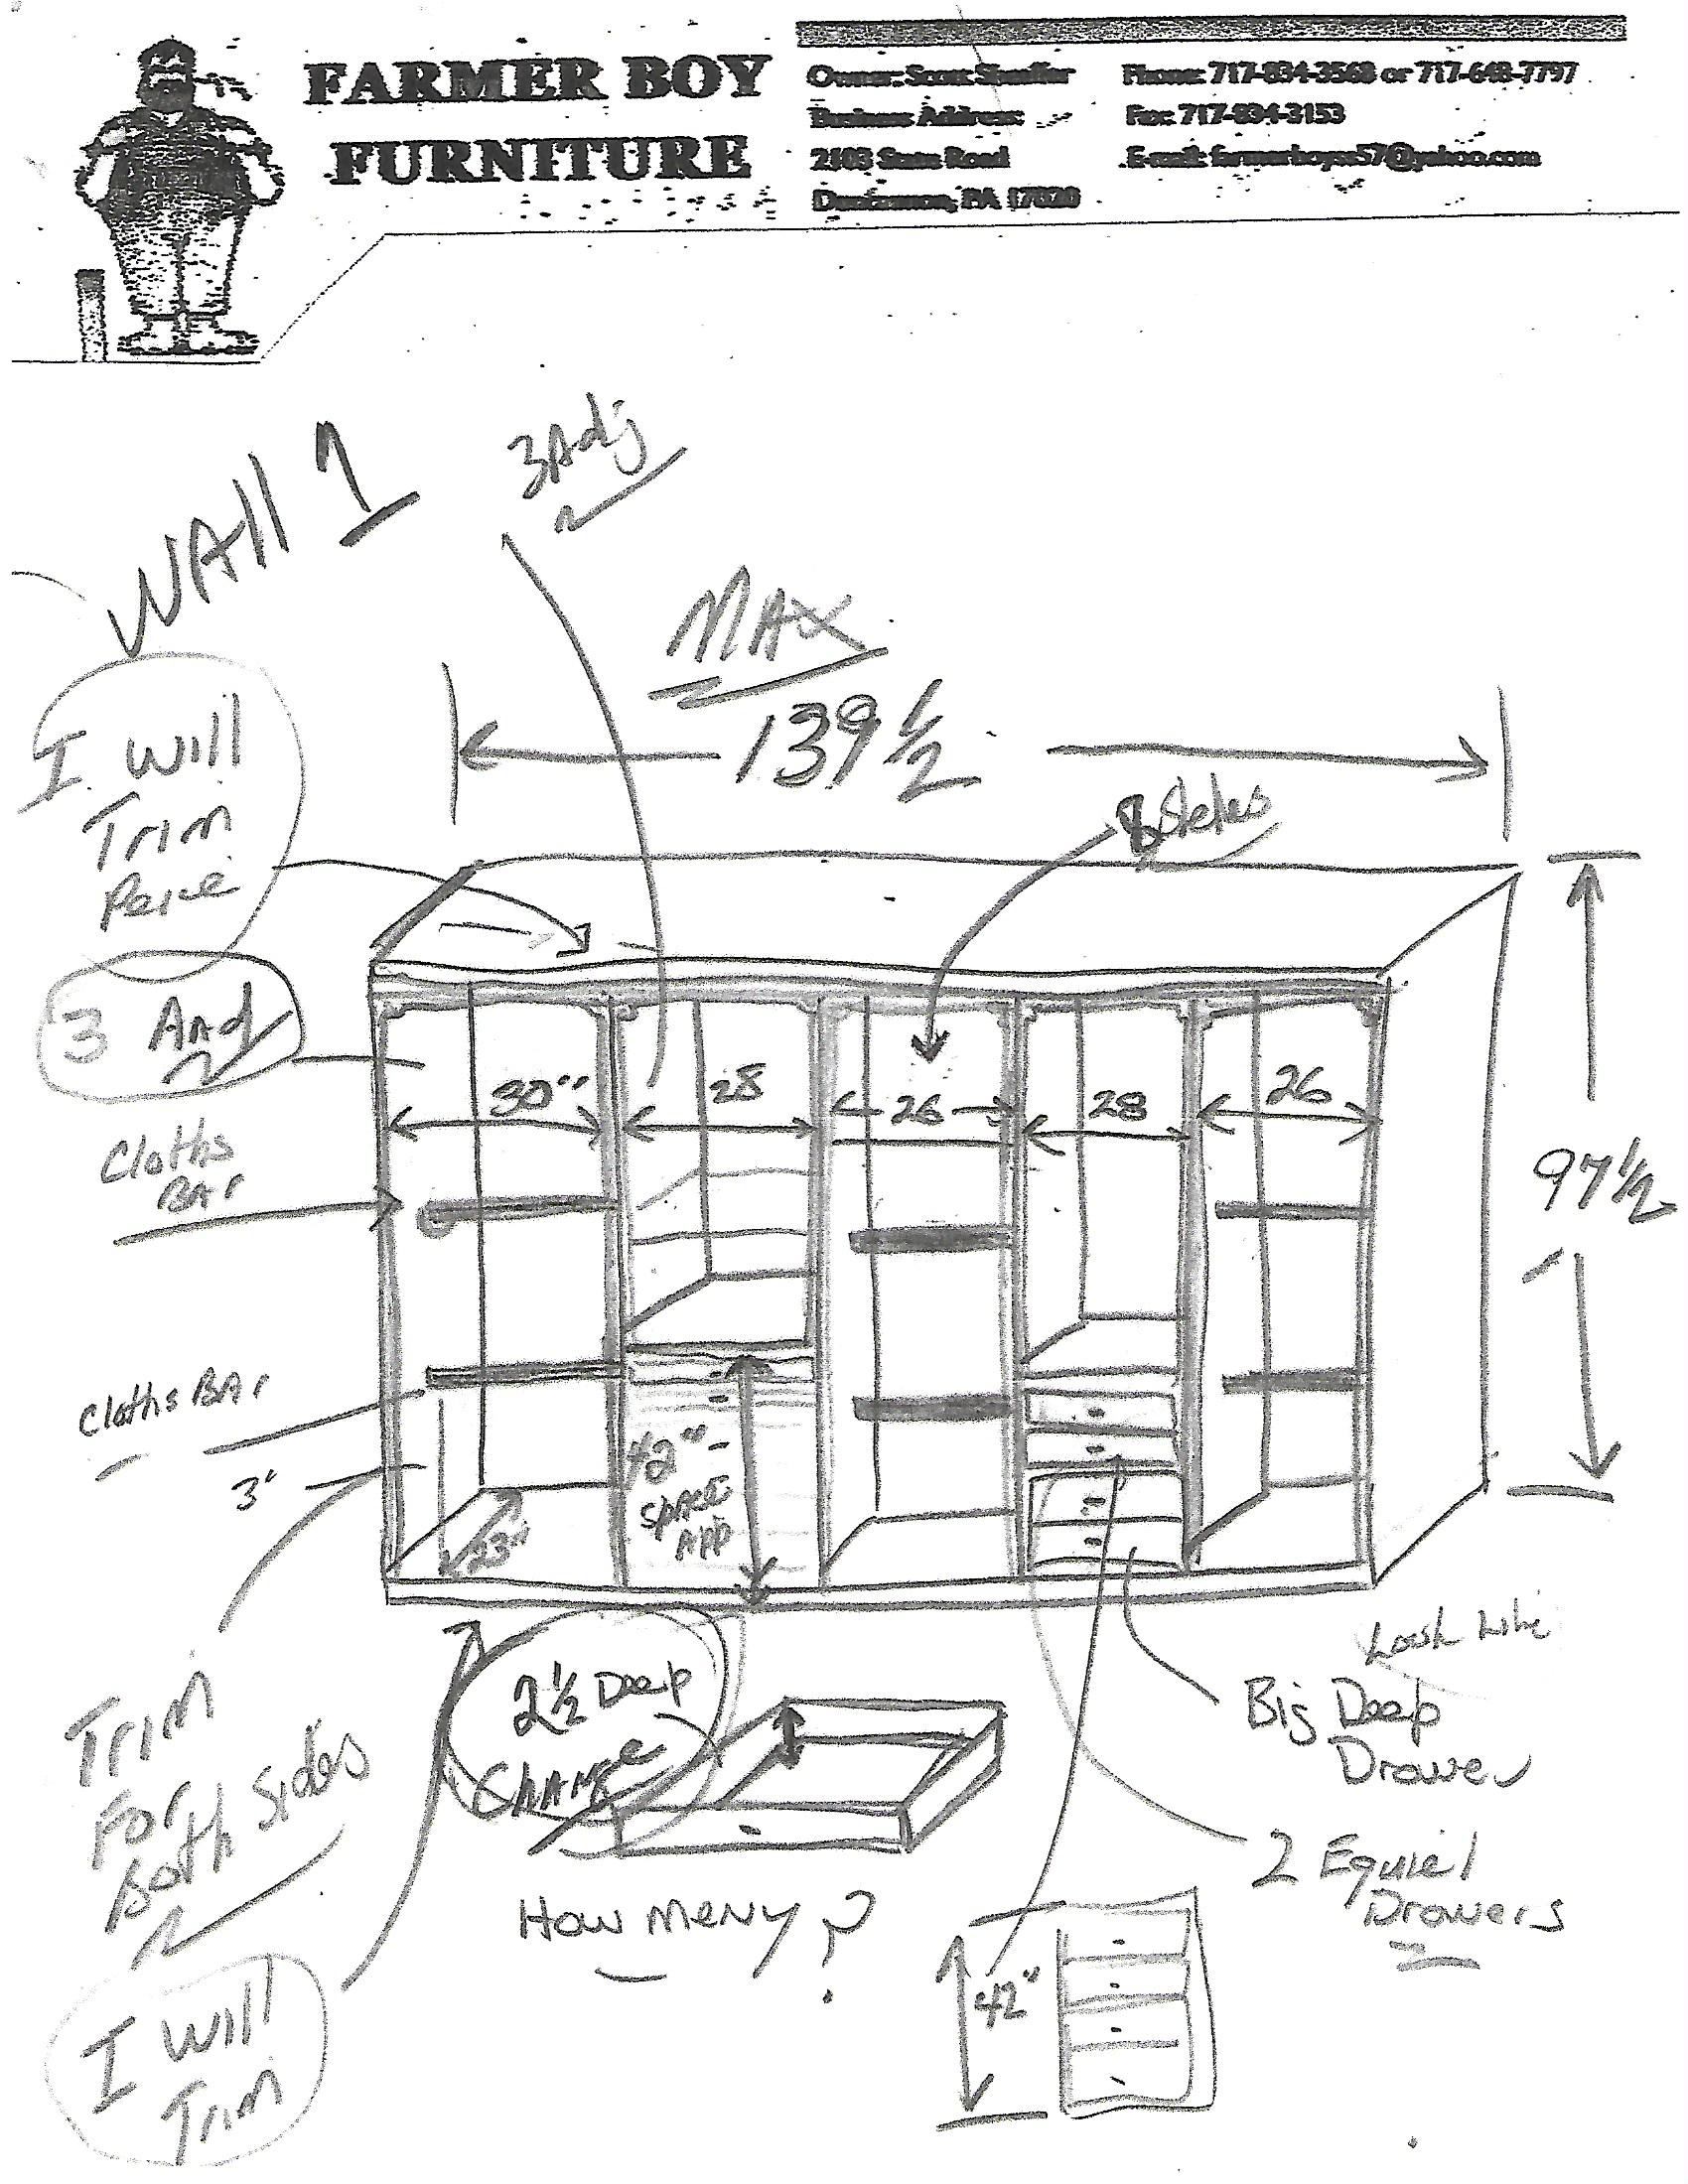 FARMER BOY
FURNITURE
Owner: Scott Sheaffer
Business Address:
2103 State Road
Duncannon, PA 17020
Phone: 717-834-3568 or 717-648-7797
Fax: 717-834-3153
E-mail: farmerboyss57@yahoo.com
WAll 1
3 Adj
MAX
139 1/2
I Will
Trim
3 And
Cloths
BAr
30"
28
26
28
26
97 1/2
Cloths BAr
3"
42"
SPACE
APP
23"
Trim
For
Both Sides
I Will
Trim
2 1/2 Deep
CHANge
How MeNy?
Look Like
Big Deep
Drawer
2 Equiel
Drawers
42"